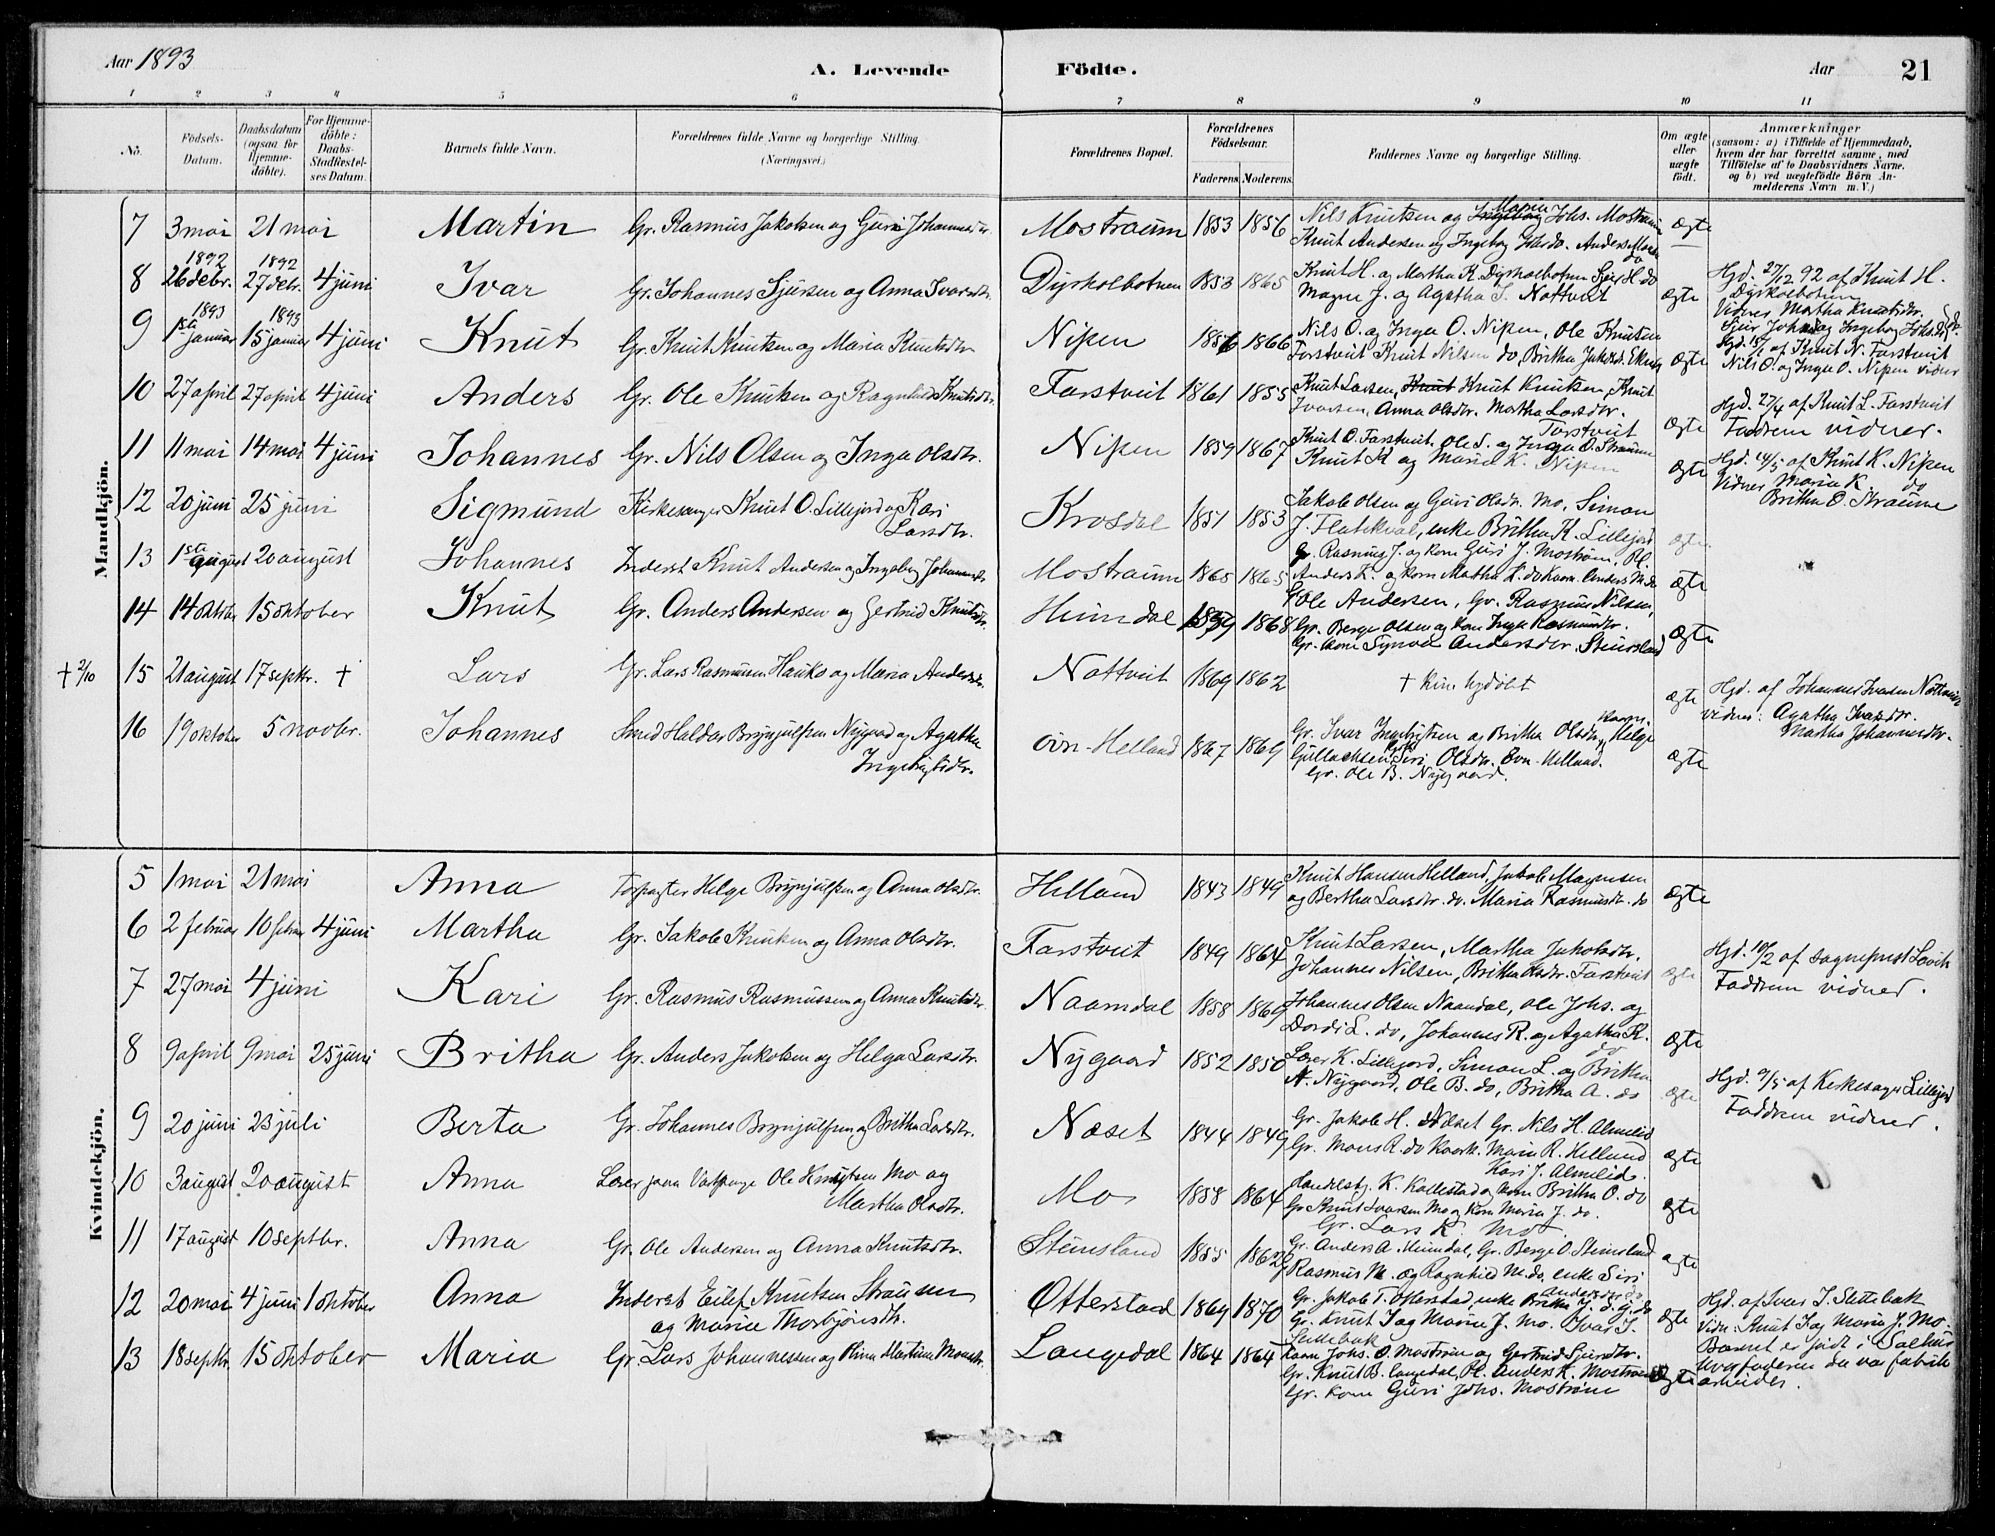 Aar 1893 A. Levende Födte. Aar 21
1 2 3 4 5 6 7 8 9 10 11
No. Födsels-Datum. Daabsdatum (ogsaa for Hjemme-döbte). For Hjemme-döbte: Daabs-Stadfæstelses Datum. Barnets fulde Navn. Forældrenes fulde Navne og borgerlige Stilling. (Næringsvei.) Forældrenes Bopæl. Forældrenes Födselsaar. Faderens. Moderens. Faddernes Navne og borgerlige Stilling. Om ægte eller uægte födt. Anmærkninger (saasom: a) i Tilfælde af Hjemmedaab, hvem der har forrettet samme, med Tilföielse af to Daabsvidners Navne. og b) ved uægtefödte Börn Anmelderens Navn m. V.)
Mandkjön.
7 3 mai 21 mai Martin Gr. Rasmus Jakobsen og Guri Johannesdr. Mostraum 1853 1856 Nils Knutsen og Maria Johs. Mostraum ægte
Knut Andersen og Ingebog Johs do. Anders
8 1892 26 debr. 1892 27 debr. 4 juni Ivar Gr. Johannes Sjursen og Anna Ivarsdr. Dyrkolbotnen 1853 1865 Knut H. og Martha K. Dyrkolbotnen Sjur H. do ægte Hjd. 27/12 92 af Knut H.
Magne J. og Agatha I. Nottveit Dyrkolbotnen
Vidner Martha Knutsdr.
Sjur Johs og Ingebog Johsdr do.
9 1893 1ste januar 1893 15 januar 4 juni Knut Gr. Knut Knutsen og Maria Knutsdr. Nipen 1856 1866 Nils O. og Inga O. Nipen, Ole Knutsen ægte Hjd. 15/1 af Knut N. Farstveit
Farstveit Knut Nilsen do, Britha Jakobsd. Nils O. og Inga O. Nipen vidner
10 27 april 27 april 4 juni Anders Gr. Ole Knutsen og Ragnhild Knutsdr. Farstveit 1861 1855 Knut Larsen, Knut Knutsen, Knut ægte Hjd. 27/4 af Knut L. Farstveit
Ivarsen, Anna Olsdr. Martha Larsdr. Faddrene vidner.
Farstveit
11 11 mai 14 mai 4 juni Johannes Gr. Nils Olsen og Inga Olsdtr. Nipen 1859 1867 Knut O. Farstveit, Ole S. og Inga O. Straume ægte Hjd. 14/5 af Knut K. Nipen
Knut K og Maria K. Nipen Vidner Maria K do
Britha O. Straume
12 20 juni 25 juni Sigmund Kirkesanger Knut O. Lillejord og Kari Larsdtr. Krosdal 1851 1853 Jakob Olsen og Guri Olsdr. Mo, Simon ægte
J. Flatekval, enke Britha K. Lillejord
13 1ste august 20 august Johannes Inderst Knut Andersen og Ingebog Johannesdr Mostraum 1865 1865 Gr. Rasmus J. og kone Guri J. Mostrøm, Pl. ægte
Anders K. og kone Martha K. do
14 14 oktober 15 oktober Knut Gr. Anders Andersen og Gertrud Knutsdtr. Heimdal 1859 1868 Ole Andersen, Gr. Rasmus Nilsen, ægte
Gr. Berge Olsen og kone Inga Rasmusdr.
Gr. kone Synva Andersdr. Steinsland
† 2/10 15 21 august 17 septbr. † Lars Gr. Lars Rasmussen Hauko og Maria Andersdr. Nottveit 1869 1862 † kun hjdøbt ægte Hjd. af Johannes Ivarsen Nottveit
vidner: Agatha Ivarsdr.
Martha Johannesdr.
16 19 oktober 5 novbr. Johannes Smed Haldor Brynjulfsen Nygaard og Agatha Ingebrigtsdtr. øvr-Helland 1867 1869 Gr. Ivar Ingebrigtsen og Britha Olsdr. Helge ægte
Gullachsen Siri Olsdr. Øvr-Helland.
Gr. Ole B. Nygaard.
Kvindekjön.
5 1 mai 21 mai Anna Forpagter Helge Brynjulfsen og Anna Olsdtr. Helland 1843 1849 Knut Hansen Helland, Jakob Magnesen ægte
og Bertha Larsdtr. do. Maria Rasmusdr. do
6 2 februar 10 febrar 4 juni Martha Gr. Jakob Knutsen og Anna Olsdtr. Farstveit 1849 1864 Knut Larsen, Martha Jakobsdtr. ægte Hjd. 10/2 af sognepræst Løvik
Johannes Nilsen, Britha Olsdr. Farstveit Faddrene vidner.
7 27 mai 4 juni Kari Gr. Rasmus Rasmussen og Anna Knutsdr. Naamdal 1858 1869 Johannes Olsen Naamdal, Ole Johs. og ægte
Dordi L. do, Johannes R. og Agatha R. do
8 9 april 9 mai 25 juni Britha Gr. Anders Jakobsen og Helga Larsdtr. Nygaard 1852 1850 Lærer K. Lillejord, Simon L. og Britha ægte Hjd. 9/5 af Kirkesanger Lillejord
A. Nygaard, Ole B. do, Britha A. do Faddrene vidner.
9 20 juni 23 juli Berta Gr. Johannes Brynjulfsen og Britha Larsdtr. Næset 1844 1849 Gr. Jakob H. Næset Gr. Nils H. Almelid ægte
Gr. Mons R. do Maria R. Helland
Kari J. Almelid.
10 3 august 20 august Anna Lærer paa Ole Knutsen Mo og Martha Olsdtr. Mo 1858 1864 Handelsbj. K. Kallestad og kone Britha O. do ægte
Gr Knut Ivarsen Mo og kone Maria J. do.
Gr. Lars K. Mo
11 17 august 10 septbr. Anna Gr. Ole Andersen og Anna Knutsdtr. Steinsland 1855 Gr. Anders A. Heimdal, Gr. Berge O. Steinsland ægte
Rasmus N. og Ragnhild N. do, enke Siri
Andersdr do
12 20 mai 4 juni 1 oktober Anna Inderst Eilef Knutsen Straumen og Maria Thorbjørnsdtr. Otterstad 1869 1870 Gr. Jakob T. Otterstad, enke Britha J. d. g. do ægte Hjd. af Ivar J. Slettebak
Gr. Knut I og Maria J. Mo. Ivar J. Vidn: Knut I og Maria J. Mo.
Slettebak Barnet er født i Salhus
hvor faderen da var fabrik
arbeider.
13 18 septbr. 15 oktober Maria Gr. Lars Johannessen og Martina Monsdr. Langedal 1864 1864 Johs. O. Mostrøm og Gertrud Sjursdtr. ægte
Gr. Knut B. Langedal, Pl. Anders K. Mostrøm
Gr. kone Guri Johs. Mostrøm